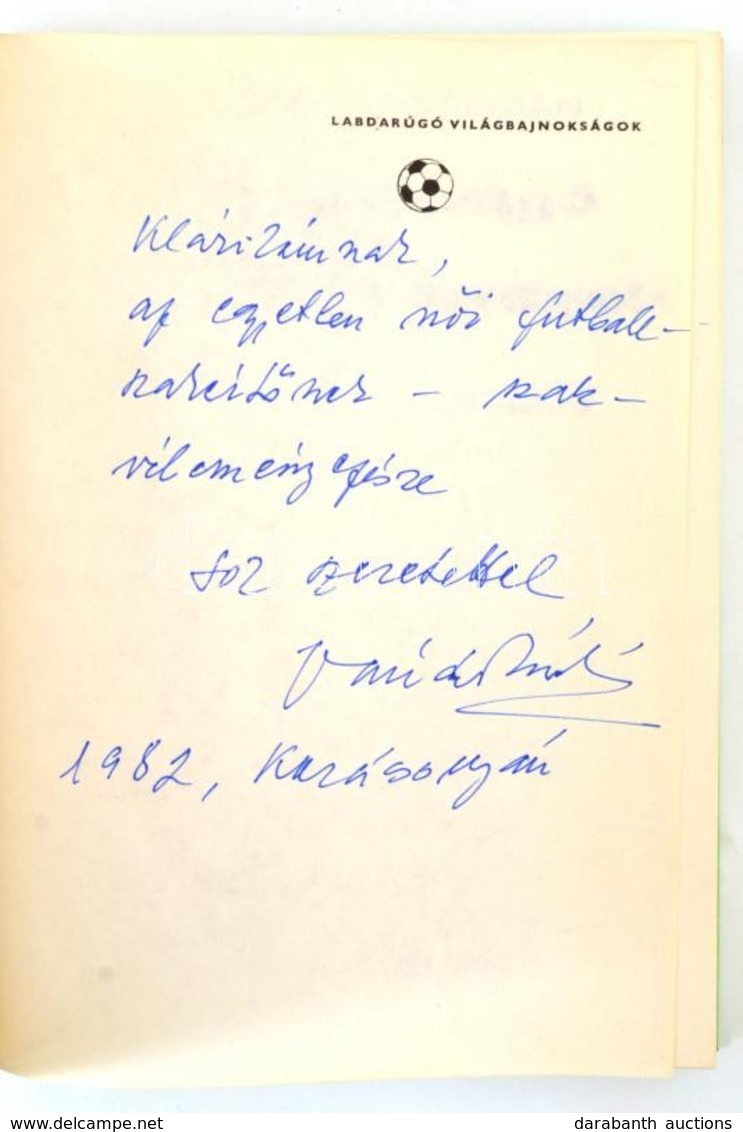 LABDARÚGÓ VILÁGBAJNOKSÁGOK
Klárikámnak,
az egyetlen női futball-
szakértőnek – szak-
véleményezésre
sok szeretettel
1982, Karácsonyán
www.delcampe.net
darabanth auctions